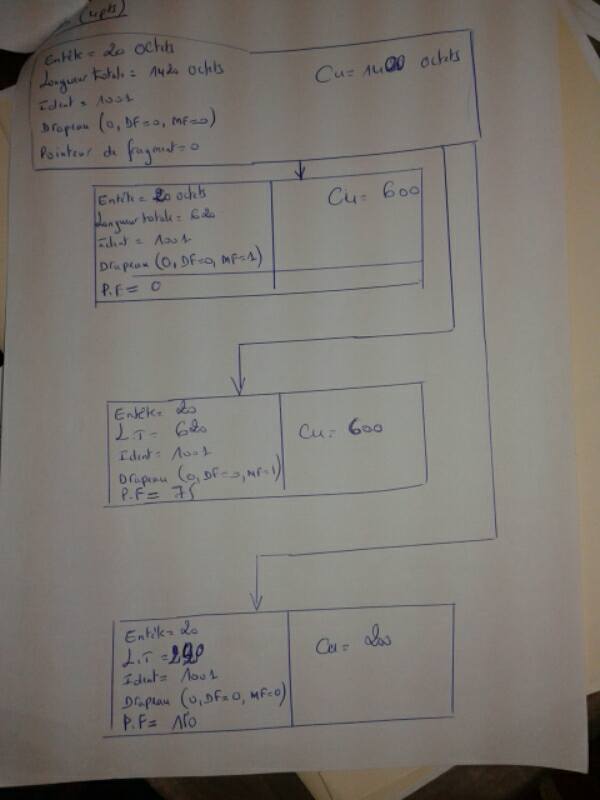 (4pts)
Entête = 20 octets
Longueur totale = 1420 octets
Ident = 1001
Drapeau (0, DF=0, MF=0)
Pointeur de fragment = 0
Cu = 1400 octets
Entête = 20 octets
Longueur totale = 620
Ident = 1001
Drapeau (0, DF=0, MF=1)
P.F = 0
Cu = 600
Entête = 20
L.T = 620
Ident = 1001
Drapeau (0, DF=0, MF=1)
P.F = 75
Cu = 600
Entête = 20
L.T = 220
Ident = 1001
Drapeau (0, DF=0, MF=0)
P.F = 150
Cu = 200